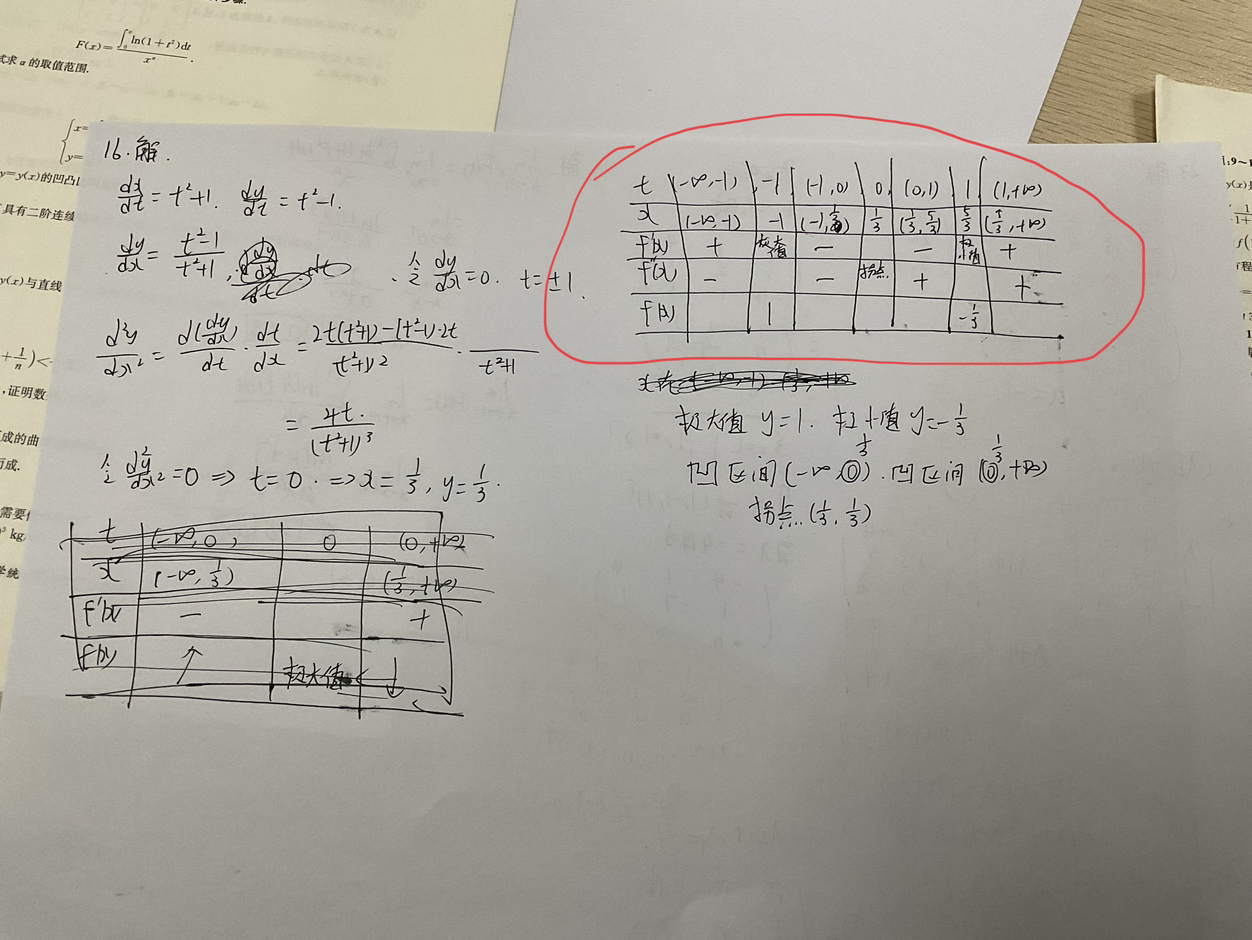 F(x)=∫₀ˣln(1+t²)dt/xᵃ.
试求 a 的取值范围.
x=
y=
y=y(x)的凹凸
具有二阶连续
y(x)与直线
+1/n)<
,证明数
成的曲
而成.
需要
kg
学统
16.解.
dx/dt=t²+1. dy/dt=t²-1.
dy/dx=t²-1/t²+1, 令dy/dx=0. t=±1.
d²y/dx²=d(dy/dx)/dt·dt/dx=2t(t²+1)-(t²-1)·2t/(t²+1)²·1/t²+1
=4t/(t²+1)³
令d²y/dx²=0⇒t=0.⇒x=1/3,y=1/3.
t (-∞,0) 0 (0,+∞)
x (-∞,1/3) (1/3,+∞)
f'(x) - +
f(x) ↑ 极大值 ↓
t (-∞,-1) -1 (-1,0) 0 (0,1) 1 (1,+∞)
x (-∞,-1) -1 (-1,1/3) 1/3 (1/3,5/3) 5/3 (5/3,+∞)
f'(x) + 极大值 - - 极小值 +
f''(x) - - 拐点 + +
f(x) 1 -1/3
极大值 y=1. 极小值 y=-1/3
凹区间(-∞,1/3).凹区间(1/3,+∞)
拐点.(1/3,1/3)